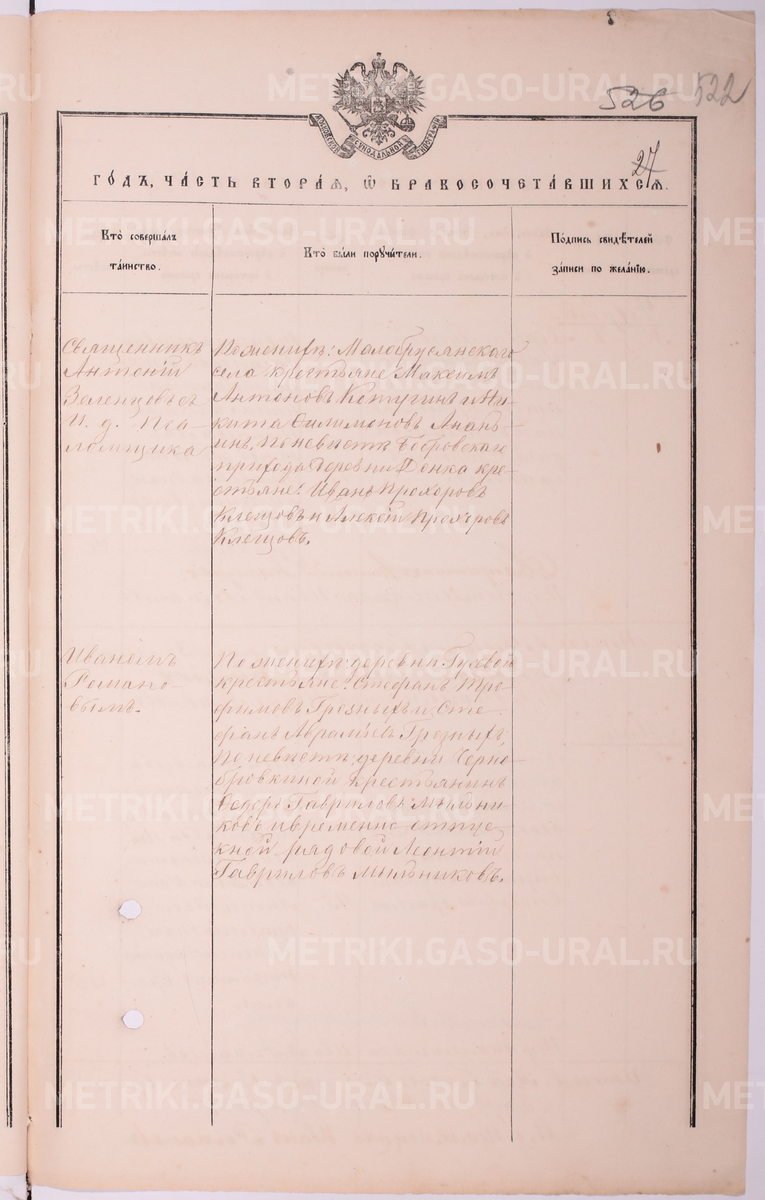 526 522
МОСКОВСКОЙ СУНОДАЛЬНОЙ ТИПОГРАФІИ
27
ГО́ДЪ, ЧА́СТЬ ВТОРА́Ѧ, Ѽ БРАКОСОЧЕТА́ВШИХСѦ.
Кто̀ соверша́лъ
та́инство.
Кто̀ бы́ли порꙋчи́тели.
По́дпись свидѣ́телей
за́писи по жела́нїю.
Священникъ
Антоній
И. д. Пса-
ломщика
По женихѣ: Малобрусянскаго
села крестьяне: Максимъ
Антоновъ Котугинъ и Ни-
кита Филимоновъ Анань-
инъ, По невѣстѣ Бобровскаго
прихода деревни кре-
стьяне: Иванъ Прохоровъ
Клещовъ и Алексѣй Прохоровъ
Клещовъ.
Иваномъ
Романо-
вымъ.
По женихѣ: деревни Гусевой
крестьяне: Стефанъ Тро-
фимовъ Грозныхъ и Сте-
фанъ Аврамiевъ Грозныхъ;
По невѣстѣ: деревни Черно-
бровкиной крестьянинъ
Ѳедоръ Гавриловъ Мыльни-
ковъ и временно-отпус-
кной рядовой Леонтій
Гавриловъ Мыльниковъ.
METRIKI.GASO-URAL.RU